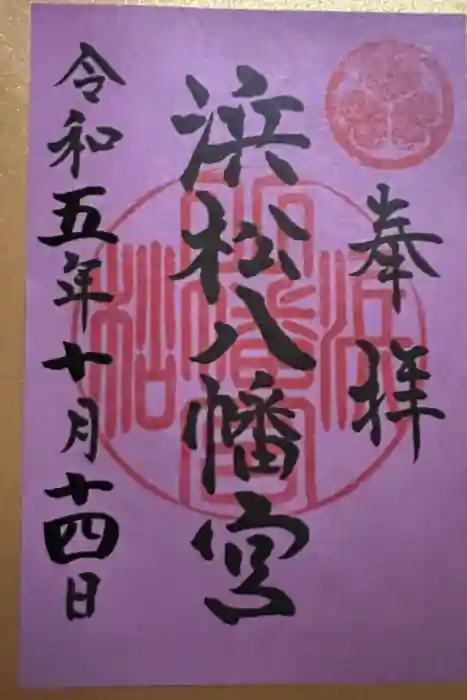 奉拝
浜松八幡宮
令和五年十月十四日